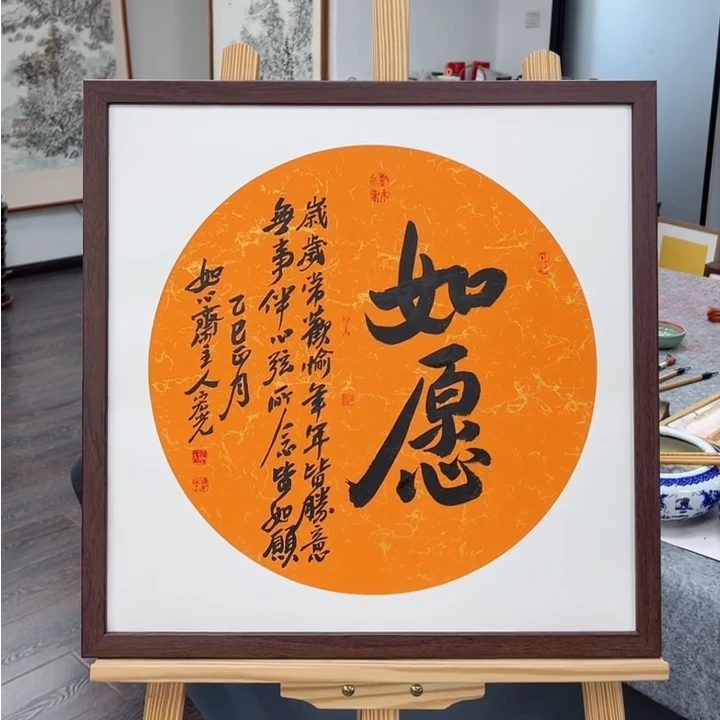 如愿
歲歲常歡愉年年皆勝意
無事伴心弦所念皆如願
乙巳正月
如心齋主人宏光